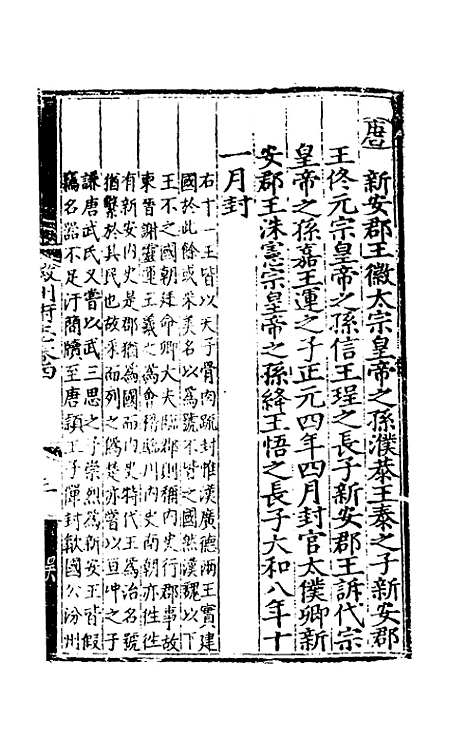 唐
新安郡王徽太宗皇帝之孫濮恭王泰之子新安郡
王佟元宗皇帝之孫信王瑝之長子新安郡王訢代宗
皇帝之孫嘉王運之子正元四年四月封官太僕卿新
安郡王洙憲宗皇帝之孫絳王悟之長子大和八年十
一月封
右十一王皆以天子骨肉疏封惟漢廣德兩王實建
國於此餘或采美名以為號不皆之國然漢魏以下
王不之國朝廷命卿大夫臨郡則稱内史行郡事故
東晉謝靈運王羲之為會稽臨川内史而朝亦徃徃
有新安内史是郡猶為國而内史特代王為治名號
猶繫於其民也故采而列之偽楚亦嘗以旦冲之子
謙唐武氏又嘗以武三思之子崇烈為新安王皆假
竊名器不足汙簡牘至唐潁王子僤封歙國公汾州